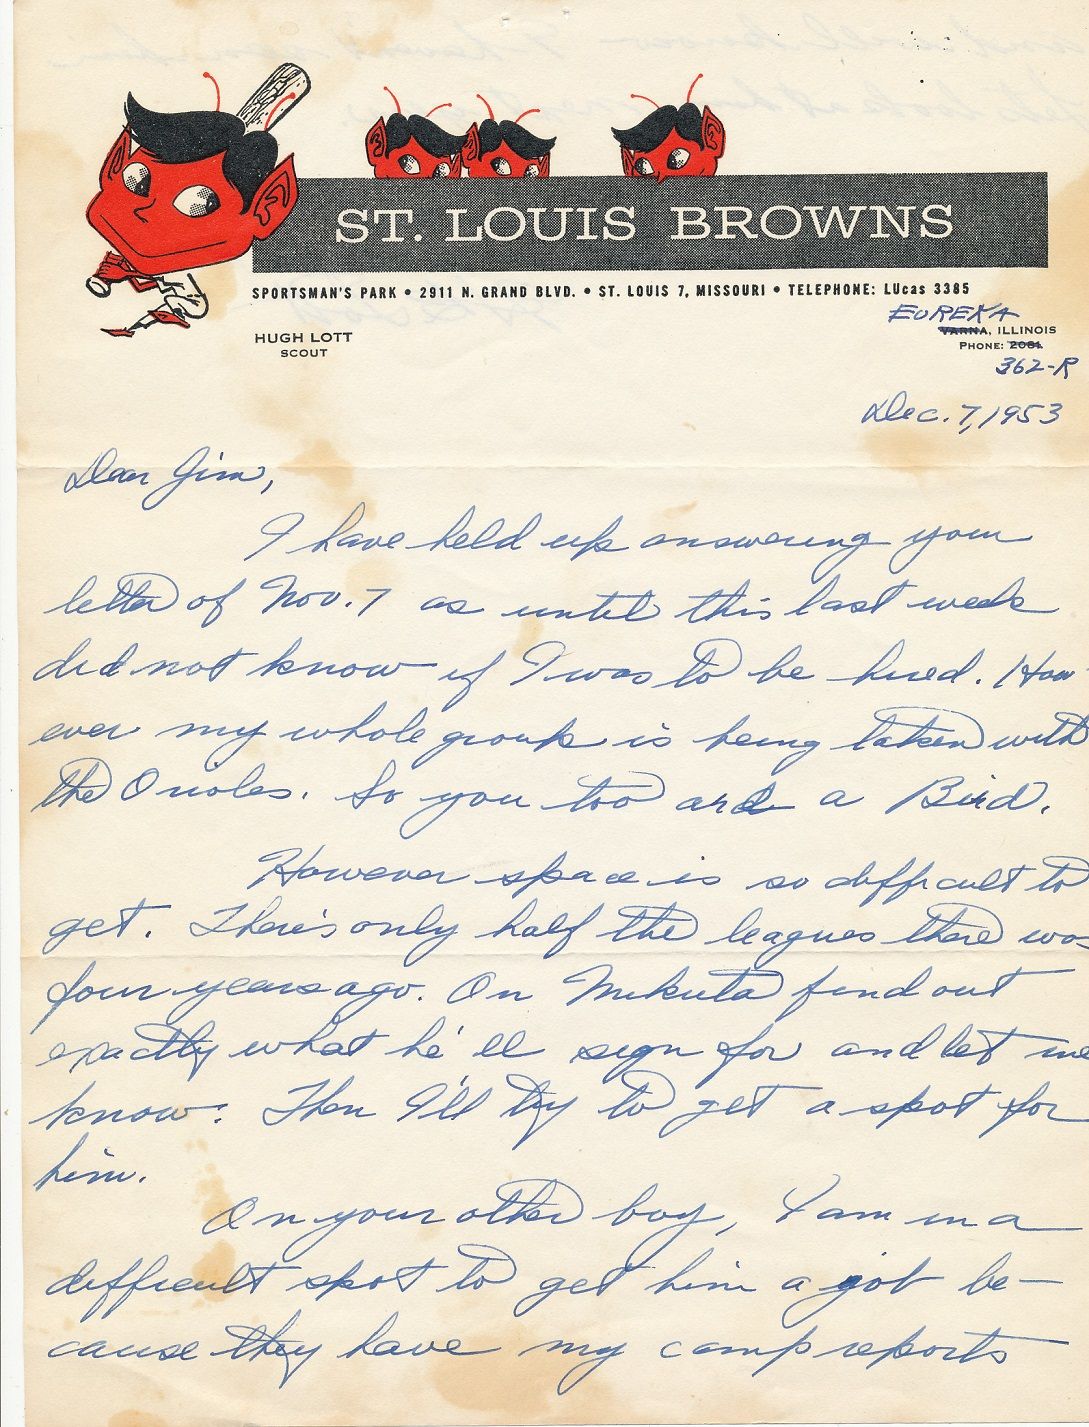 ST. LOUIS BROWNS
SPORTSMAN'S PARK • 2911 N. GRAND BLVD. • ST. LOUIS 7, MISSOURI • TELEPHONE: LUcas 3385
HUGH LOTT
SCOUT
EUREKA
VARNA, ILLINOIS
PHONE: 2081
362-R
Dec. 7, 1953
Dear Jim,
I have held up answering your
letter of Nov. 7 as until this last week
did not know if I was to be hired. How
ever my whole group is being taken with
the Orioles. So you too are a Bird.
However space is so difficult to
get. There's only half the leagues there was
four years ago. On Mikuta find out
exactly what he'll sign for and let me
know. Then I'll try to get a spot for
him.
On your other boy, I am in a
difficult spot to get him a job be-
cause they have my camp reports